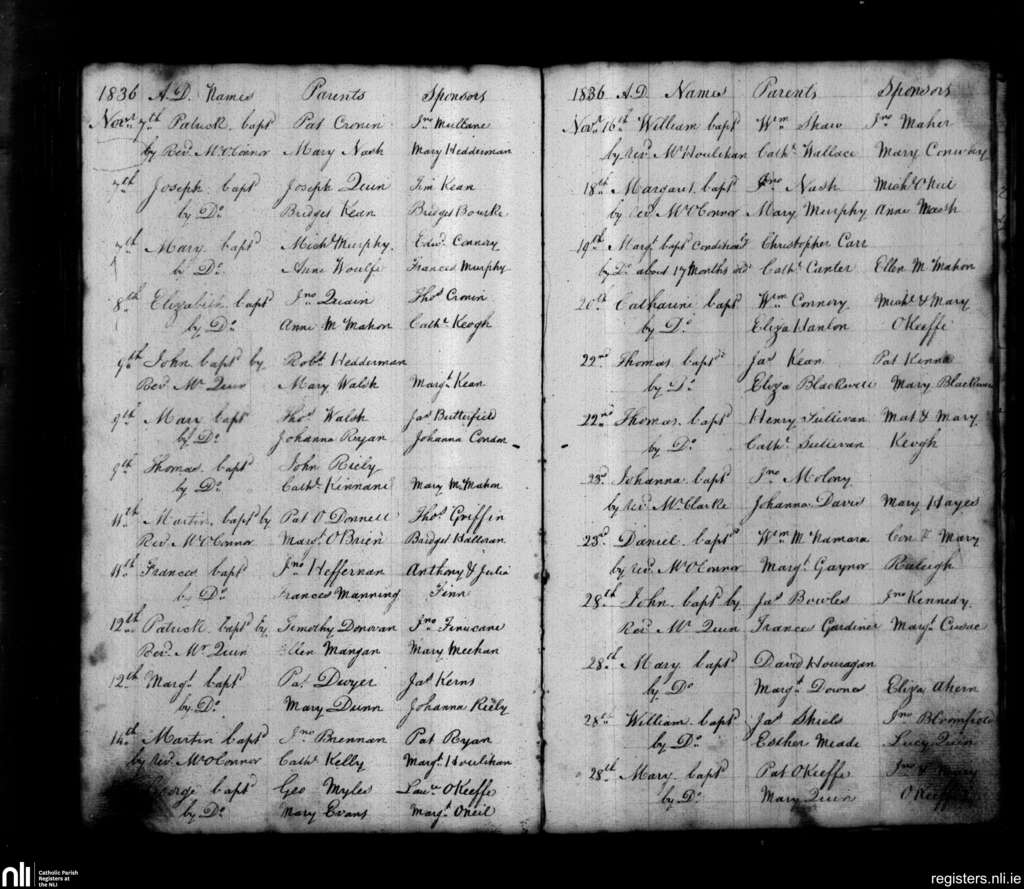 1836 A.D. Names Parents Sponsors
Novr 7th Patrick bapd Pat Cronin Jno Mullane
by Revd Mr O'Connor Mary Nash Mary Hedderman
7th Joseph bapd Joseph Quin Tim Kean
by Do Bridget Kean Bridget Bourke
7th Mary bapd Michl Murphy Edwd Connery
by Do Anne Woulfe Frances Murphy
8th Elizabeth bapd Jno Quain Thos Cronin
by Do Anne McMahon Cathe Keogh
9th John bapd by Robt Hedderman
Revd Mr Quin Mary Walsh Margt Kean
9th Mary bapd Thos Walsh Jas Butterfield
by Do Johanna Ryan Johanna Condon
9th Thomas bapd John Riely
by Do Cathe Kinnane Mary McMahon
11th Martin bapd by Pat O Donnell Thos Griffin
Revd Mr O'Connor Margt O'Brien Bridget Halloran
11th Frances bapd Jno Heffernan Anthony & Julia
by Do Frances Manning Finn
12th Patrick bapd by Timothy Donovan Jno Finucane
Revd Mr Quin Ellen Mangan Mary Meehan
12th Margt bapd Pat Dwyer Jas Kerns
by Do Mary Dunn Johanna Riely
14th Martin bapd Jno Brennan Pat Ryan
by Revd Mr O'Connor Cathe Kelly Margt Houlihan
George bapd Geo Myles Lawe O'Keeffe
by Do Mary Evans Margt ONeil
1836 A.D. Names Parents Sponsors
Novr 16th William bapd Wm Shaw Jno Maher
by Revd Mr Houlihan Cathe Wallace Mary Conway
18th Margaret bapd Jno Nash Michl ONeil
by Revd Mr O'Connor Mary Murphy Anne Nash
19th Margt bapd Conditionally Christopher Carr
by Do about 17 Months old Cathe Canter Ellen McMahon
20th Catharine bapd Wm Connery Michl & Mary
by Do Eliza Hanlon OKeeffe
22nd Thomas bapd Jas Kean Pat Kenna
by Do Eliza Blackwell Mary Blackwell
22nd Thomas bapd Henry Sullivan Mat & Mary
by Do Cathe Sullivan Keogh
23d Johanna bapd Jno Molony
by Revd Mr Clarke Johanna Davis Mary Hayes
23d Daniel bapd Wm McNamara Con & Mary
by Revd Mr O'Connor Margt Gaynor Raleigh
28th John bapd by Jas Bowles Jno Kennedy
Revd Mr Quin Frances Gardiner Margt Cusac
28th Mary bapd David Houragan
by Do Margt Downes Eliza Ahern
28th William bapd Jas Shiels Jno Bloomfield
by Do Esther Meade Lucy Quin
28th Mary bapd Pat OKeeffe Jno & Mary
by Do Mary Quin OKeeffe
nli Catholic Parish
Registers at
the NLI
registers.nli.ie